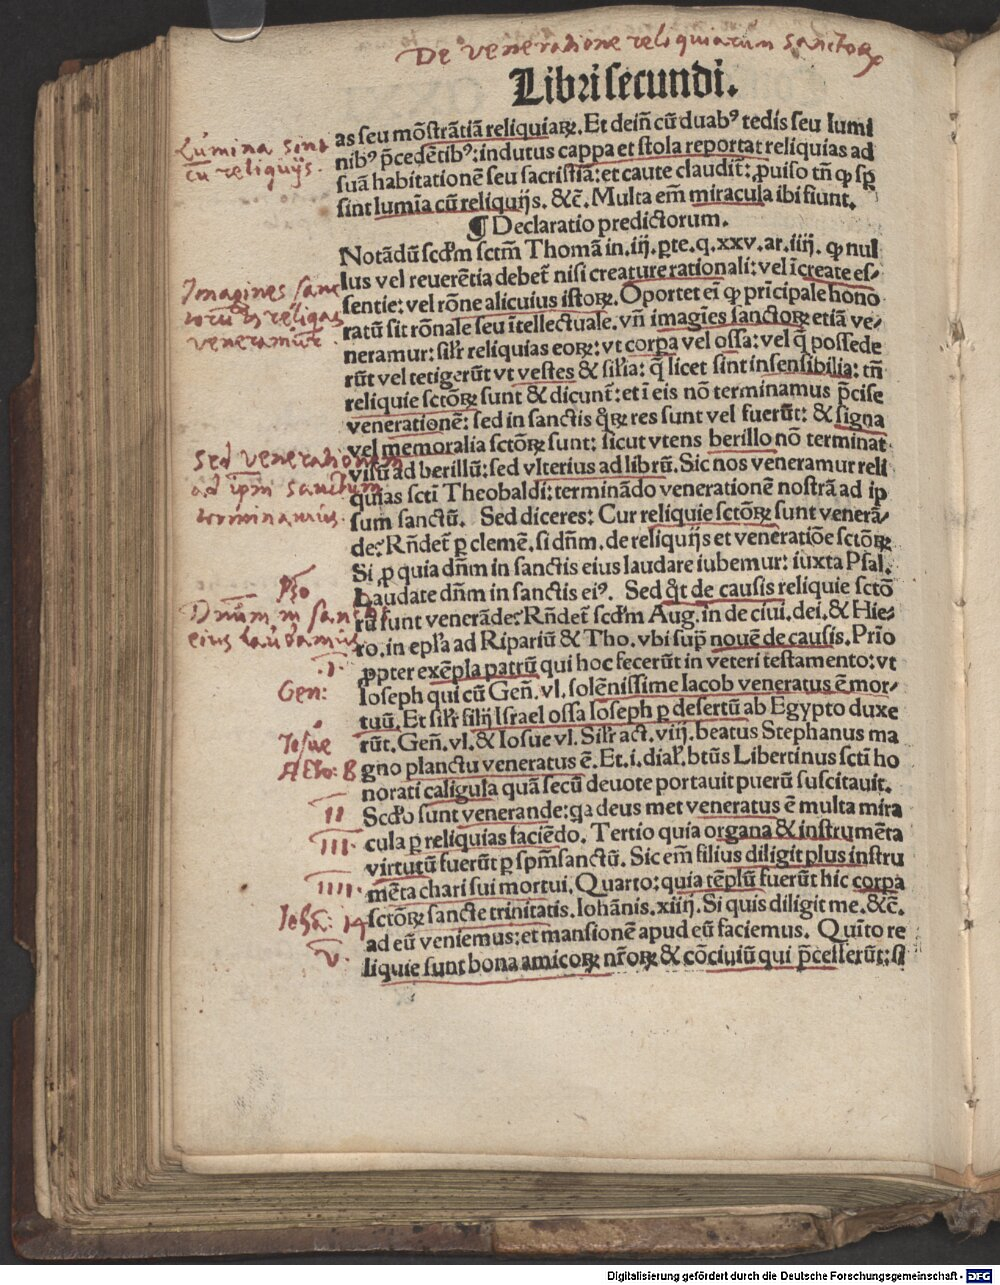 De veneratione reliquiarum sanctoꝝ
Libri secundi.
as seu mōstrātiā reliquiaꝝ. Et dein̄ cū duabꝰ tedis seu lumi
nibꝰ p̄cedētibꝰ: indutus cappa et stola reportat reliquias ad
suā habitationē seu sacristiā: et caute claudit̄: ꝓuiso tn̄ ꝙ sp̄
sint lumīa cū reliquijs. &c̄. Multa em̄ miracula ibi fiunt.
¶ Declaratio predictorum.
Notādū scd'm sctm̄ Thomā in. iij. ꝑte. q. xxv. ar. iiij. ꝙ nul
lus vel reuerētia debet̄ nisi creature rationali: vel īcreate es-
sentie: vel rōne alicuius istoꝝ. Oportet eī ꝙ prīcipale hono
ratū sit rōnale seu ītellectuale. vn̄ imagīes sanctoꝝ etiā ve-
neramur: silr̄ reliquias eoꝝ: vt corpa vel ossa: vel q̄ possede
rūt vel tetigerūt vt vestes & sil'ia: q̄ licet sint insensibilia: tn̄
reliquie sctōꝝ sunt & dicunt̄: et ī eis nō terminamus p̄cise
venerationē: sed in sanctis q̄ꝝ res sunt vel fuerūt: & signa
vel memoralia sctōꝝ sunt: sicut vtens berillo nō terminat
visū ad berillū: sed vlterius ad librū. Sic nos veneramur reli
quias scti Theobaldi: terminādo venerationē nostrā ad ip
sum sanctū. Sed diceres: Cur reliquie sctōꝝ sunt venerā-
de? Rn̄det̄ ꝑ clemē. si dn̄m. de reliquijs et veneratiōe sctōꝝ
Si ꝓ quia dn̄m in sanctis eius laudare iubemur: iuxta Psal.
Laudate dn̄m in sanctis eiꝰ. Sed q̄t de causis reliquie sctō
rū sunt venerāde? Rn̄det̄ scd'm Aug. in de ciui. dei. & Hie-
ro. in epl'a ad Ripariū & Tho. vbi sup̄ nouē de causis. Prīo
ꝓpter exēpla patrū qui hoc fecerūt in veteri testamento: vt
Ioseph qui cū Gen̄. vl. solēnissime Iacob veneratus ē mor-
tuū. Et silr̄ filij Israel ossa Ioseph ꝑ desertū ab Egypto duxe
rūt. Gen̄. vl. & Iosue vl. Silr̄ act. viij. beatus Stephanus ma
gno planctu veneratus ē. Et. i. dial'. btūs Libertinus scti ho
norati caligula quā secū deuote portauit puerū suscitauit.
Scd'o sunt venerande: qa deus met veneratus ē multa mira
cula ꝑ reliquias faciēdo. Tertio quia organa & instrumēta
virtutū fuerūt ꝑ spm̄ sanctū. Sic em̄ filius diligit plus instru
mēta chari sui mortui. Quarto: quia tēplū fuerūt hic corpa
sctōꝝ sancte trinitatis. Iohānis. xiiij. Si quis diligit me. &c̄.
ad eū veniemus: et mansionē apud eū faciemus. Quīto re
liquie sunt bona amicoꝝ nr̄oꝝ & cōciuiū qui p̄cesserūt: si
Lumina sint
cū reliquijs.
Imagines sanc
torū et reliqas
veneramur.
Sed venerationem
ad ipm sanctum
terminamus.
Pso
Dn̄um in sanctis
eius laudamus
.I.
Gen:
Iosue
Acto: 8
II
III.
IIII.
Iohā: 14
V.
Digitalisierung gefördert durch die Deutsche Forschungsgemeinschaft - DFG